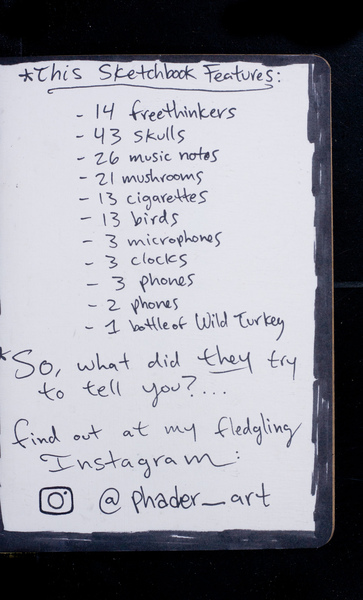 *This Sketchbook Features:
- 14 freethinkers
- 43 skulls
- 26 music notes
- 21 mushrooms
- 13 cigarettes
- 13 birds
- 3 microphones
- 3 clocks
- 3 phones
- 2 phones
- 1 bottle of Wild Turkey
*So, what did they try
to tell you?...
find out at my fledgling
Instagram:
@phader_art